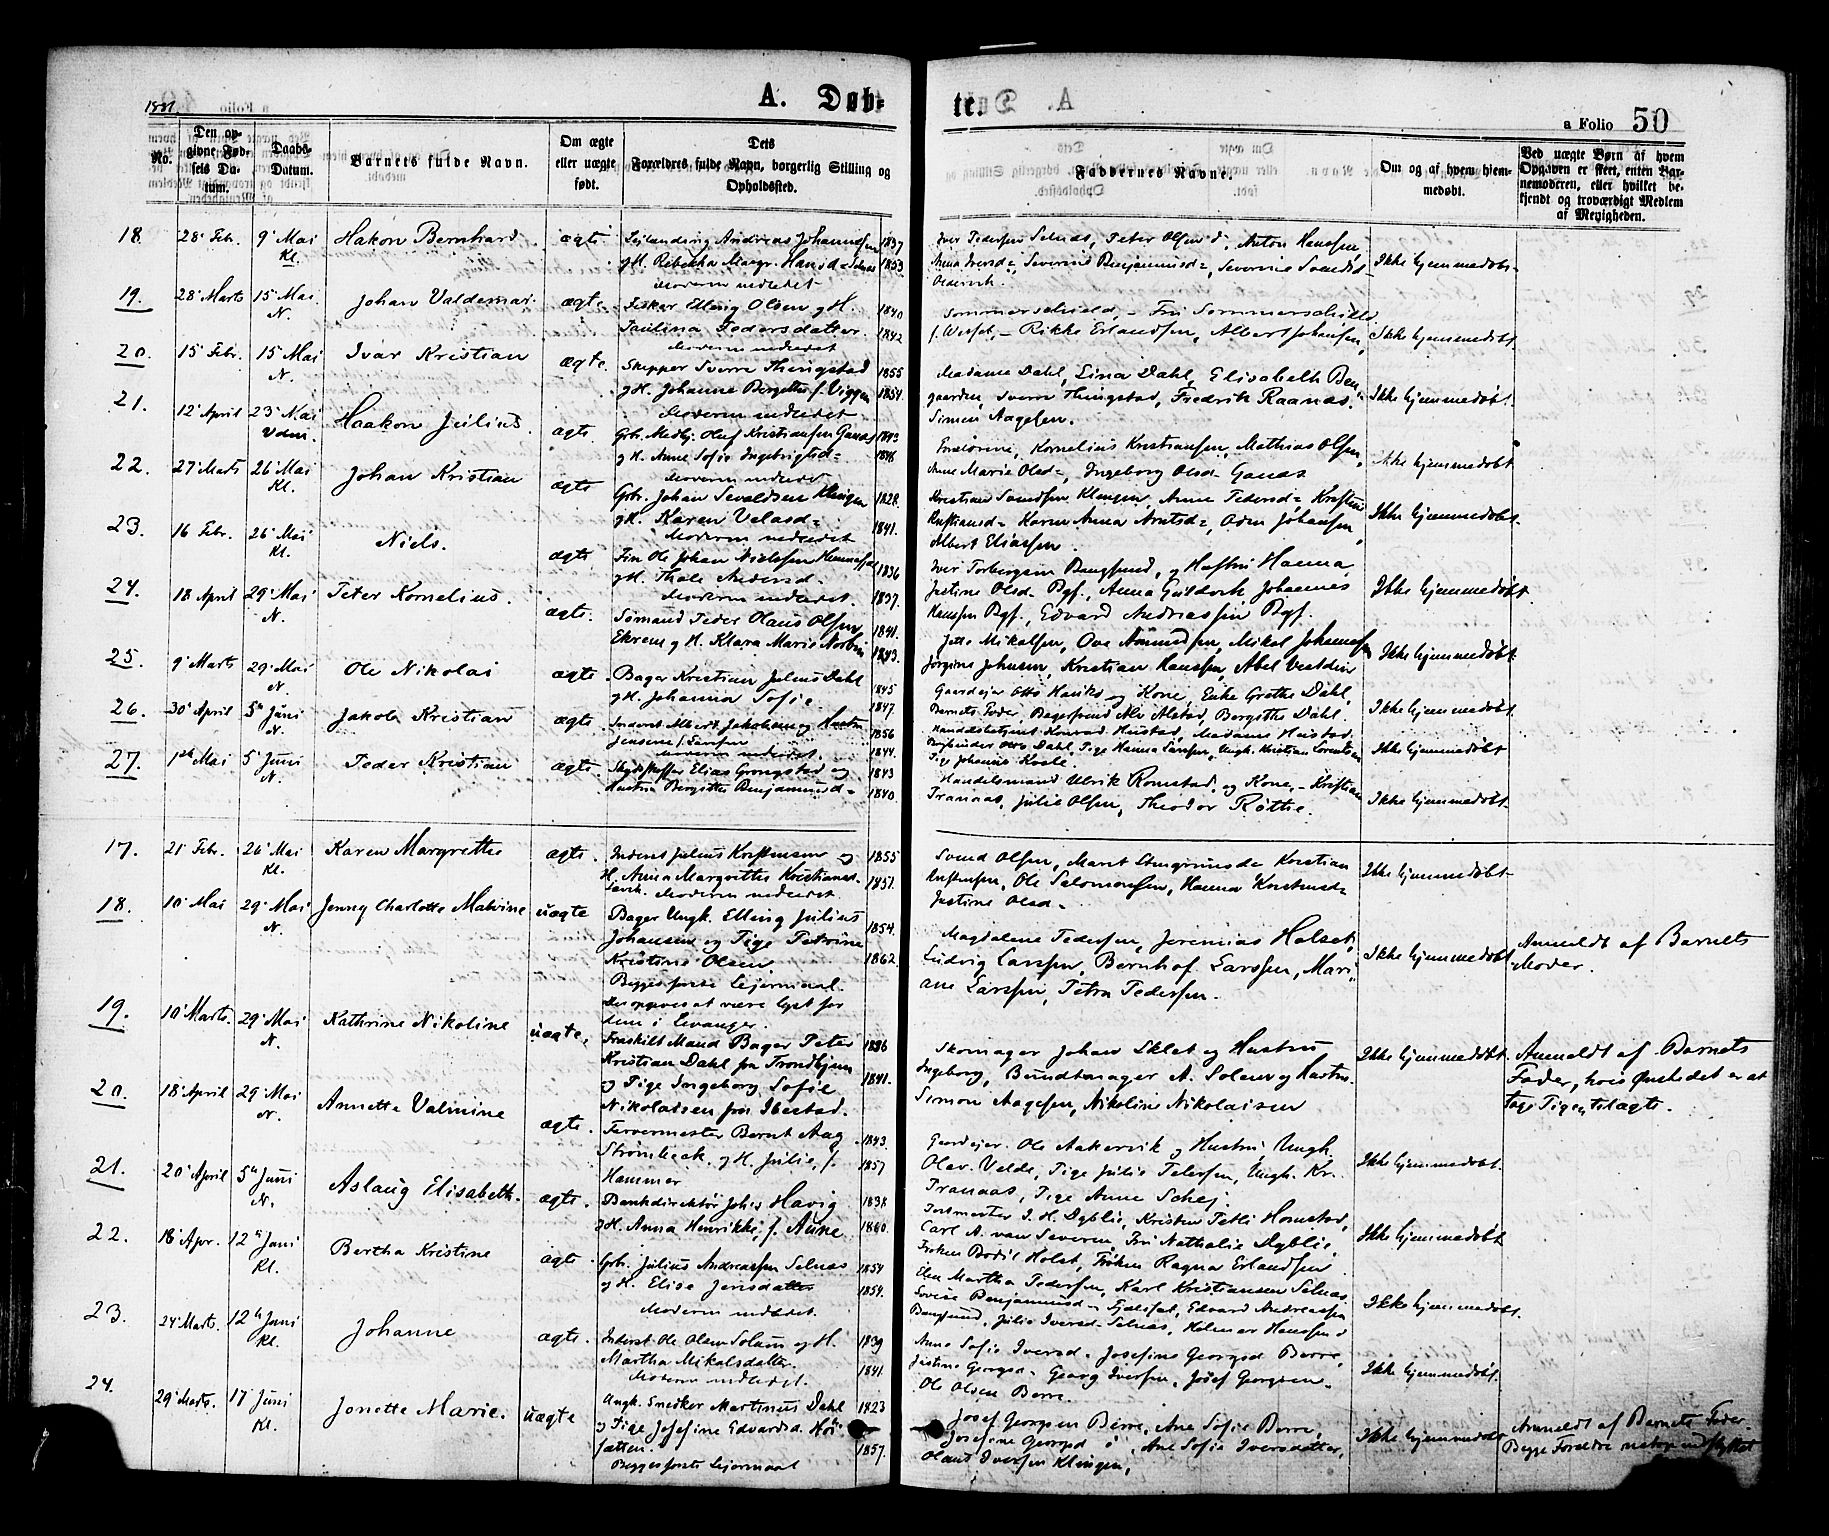 1881
A. Døb-
te.
a Folio 50
No.
Den op-
givne Fød-
sels Da-
tum.
Daabs-
Datum.
Barnets fulde Navn.
Om ægte
eller uægte
født.
Dets
Forældres fulde Navn, borgerlig Stilling og
Opholdssted.
Faddernes Navne.
Om og af hvem hjem-
medøbt.
Ved uægte Børn af hvem
Opgaven er skeet, enten Bar-
nemoderen, eller hvilket be-
kjendt og troværdigt Medlem
af Menigheden.
18. 28 Febr. 9 Mai Kl. Hakon Bernhard ægte
Andreas Johannessen 1837
g H. Rebekka Margr. Hansd = Selnæs 1853
Moderen indledet
Iver Pedersen Selnæs, Peter Olsen d, Anton Hanssen
Anna Iversd=, Severine Benjaminsd=, Severine
Ikke hjemmedøbt
19. 28 Marts 15 Mai N. Johan Valdemar ægte.
Fisker Elling Olsen g H. 1840
Paulina Pedersdatter 1842
Moderen indledet
Sommerschield, - Fru Sommerschield
f. Wessel, - Rikke Erlandsen, Albert Johansen,
Ikke hjemmedøbt.
20. 15 Febr. 15 Mai N. Ivar Kristian ægte.
Skipper Sverre Thingstad 1855
g H. Johanna Bergitte f. Viggen 1854.
Moderen indledet
Madame Dahl, Lina Dahl, Elisabeth Ben-
gaarden, Sverre Thingstad, Fredrik Raanæs,
Simon Aagesen.
Ikke hjemmedøbt.
21. 12 April 23 Mai Haakon Julius ægte.
Gbr. Olaf Kristiansen Ganæs 1843
g H. Anne Sofie Ingebrigtsd= 1846
Moderen indledet
Forældrene, Kornelius Kristiansen, Mathias Olsen,
Anne Marie Olsd=, Ingeborg Olsd= Ganæs
Ikke hjemmedøbt
22. 27 Marts 26 Mai Kl. Johan Kristian ægte.
Gbr. Johan Sevaldsen Klingen 1828.
g H. Karen Velasd= 1841.
Moderen indledet
Kristian Svendsen Klingen, Anne Pedersd=
Karen Anna Arntsd=, Johansen,
Albert Eliassen.
Ikke hjemmedøbt.
23. 16 Febr. 26 Mai Kl. Niels. ægte.
Fin Ole Johan Nielssen 1836
g H. Thale Andersd= 1837.
Moderen indledet.
Iver Torbergsen Bangsund, og Hustru Hanna,
Justine Olsd. Bgs., Anna Johannes
Hanssen Bgs., Edvard Andreassen Bgs.
Ikke hjemmedøbt.
24. 18 April 29 Mai N. Peter Kornelius. ægte.
Sømand Peder Olaus Olsen 1841.
Ekrem g H. Klara Marie 1843.
Mikalsen, Ove Mikal Johannes
Jørgine Johnsen, Kristian Hanssen, Abel
Ikke hjemmedøbt
25. 9 Marts 29 Mai N. Ole Nikolai ægte.
Bager Kristian Julius Dahl 1845
g H. Johanna Sofie. 1847.
Gaardejer Otto og Kone, Enke Grethe Dahl,
Barnets Fader, Alstad, Bergitte Dahl.
Ikke hjemmedøbt.
26. 30 April 5 Juni N. Jakob Kristian ægte.
Inderst Albert Jakobsen og Hustru 1856
1844.
Moderen indledet.
Handelsbetjent Konrad Hustad, Madame Hustad,
Otto Dahl, Pige Hanna Larssen, Ungk. Kristian
Pige Johanne
Ikke hjemmedøbt
27. 1ste Mai 5 Juni N. Peder Kristian ægte.
Elias Grongstad og 1843
Hustru Bergitte Benjaminsd= 1840.
Handelsmand Ulrik Romstad, og Kone, - Kristian
Tranaas, Julie Olsen, Theodor Røthe.
Ikke hjemmedøbt.
17. 21 Febr. 26 Mai Kl. Karen Margrethe ægte.
Inderst Julius og 1855
H. Anna Margrethe Kristiansd= 1851.
Moderen indledet
Svend Olsen, Maret Kristian
Ole Salomonsen, Hanna
Justine Olsd=
Ikke hjemmedøbt
18. 10 Mai 29 Mai N. Jenny Charlotte Malvine uægte
Bager Ungk. Elling Julius 1854.
Johansen og Pige Petrine
Kristine Olsen 1862.
Begges første Lejermaal.
Magdalene Pedersen, Jeremias Holset,
Ludvig Larssen, Bernhof. Larssen, Mari-
ane Larssen, Petra Pedersen.
Ikke hjemmedøbt
Anmeldt af Barnets
Moder.
19. 10 Marts. 29 Mai N. Kathrine Nikoline uægte.
Der opgives at være lyst for
dem i Levanger.
Fraskilt Mand Bager Peter 1836
Kristian Dahl fra Trondhjem
og Pige Ingeborg Sofie 1841.
Nikolaisen fra Ibestad.
Skomager Johan Sklet og Hustru
Ingeborg, Bundtmager A. Solem og Hustru
Simon Aagesen, Nikoline Nikolaisen
Ikke hjemmedøbt
Anmeldt af Barnets
Fader, hvis Ønske det er at
tage Pigen til ægte.
20. 18 April 29 Mai N. Annette Valmine ægte.
Farvermester Bernt Aag 1843.
Strømbeck, g H. Julie, f. 1857
Hammer
Gaardejer Ole Aakervik og Hustru, Ungk.
Olav. Velde, Pige Julie Petersen, Ungk. Kr.
Tranaas, Pige Anne Schej
Ikke hjemmedøbt.
21. 20 April 5 Juni N. Aslaug Elisabeth. ægte.
Bankdirektør Johs Havig 1838
g H. Anna Henrikke, f. Aune 1840.
Postmester I. H. Dyblie, Kristen Petli Homstad,
Carl A. van Severen, Fru Nathalie Dyblie,
Frøken Bodil Holst, Frøken Ragna Erlandsen
Ikke hjemmedøbt
22. 18 Apr. 12 Juni Kl. Bertha Kristine ægte.
Gbr. Julius Andreassen Selnæs 1854
g H. Elise Jensdatter 1859.
Moderen indledet.
Elen Martha Pedersen, Karl Kristiansen Selnæs,
Lovise Benjaminsd=, Edvard Andreassen
Bangsund, Julie Iversd= Selnæs, Helmer Hanssen d
Ikke hjemmedøbt.
23. 24 Marts. 12 Juni Kl. Johanne ægte.
Inderst. Ole Olsen Solum g H. 1839
Martha Mikalsdatter. 1841.
Moderen indledet.
Anne Sofie Iversd. Josefine Georgsd Berre,
Justine Georgsd=, Georg Iversen, Josef Georgsen=
Ole Olsen Berre.
Ikke hjemmedøbt.
24. 29 Marts. 17 Juni Kl. Jonette Marie. uægte
Ungk. Snedker Martinus Dahl 1823
og Pige Josefine Edvardsd. 1857.
Begges første Lejermaal
Josef Georgsen Berre, Ane Sofie Berre,
Josefine Georgsd d, Ane Sofie Iversdatter,
Olaus Iversen Klingen,
Ikke hjemmedøbt
Anmeldt af Barnets Fader
Begge Forældre